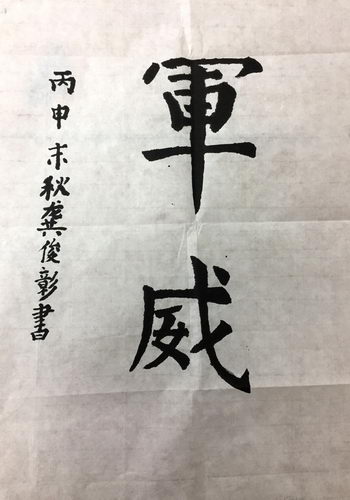 軍威
丙申末秋龔俊彰書